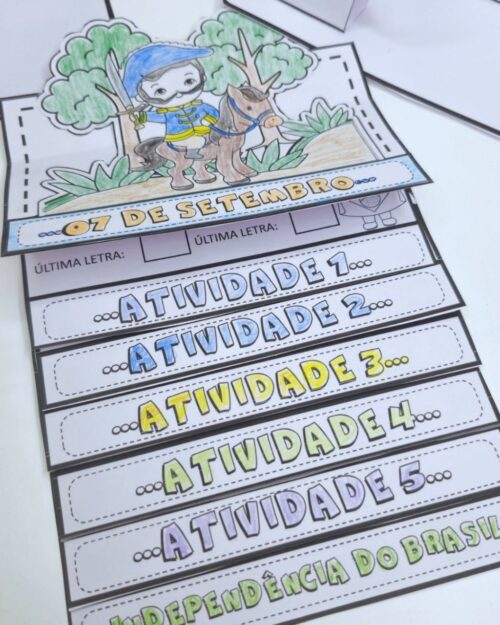 07 DE SETEMBRO
ÚLTIMA LETRA: ÚLTIMA LETRA:
ATIVIDADE 1
ATIVIDADE 2
ATIVIDADE 3
ATIVIDADE 4
ATIVIDADE 5
INDEPENDÊNCIA DO BRASIL